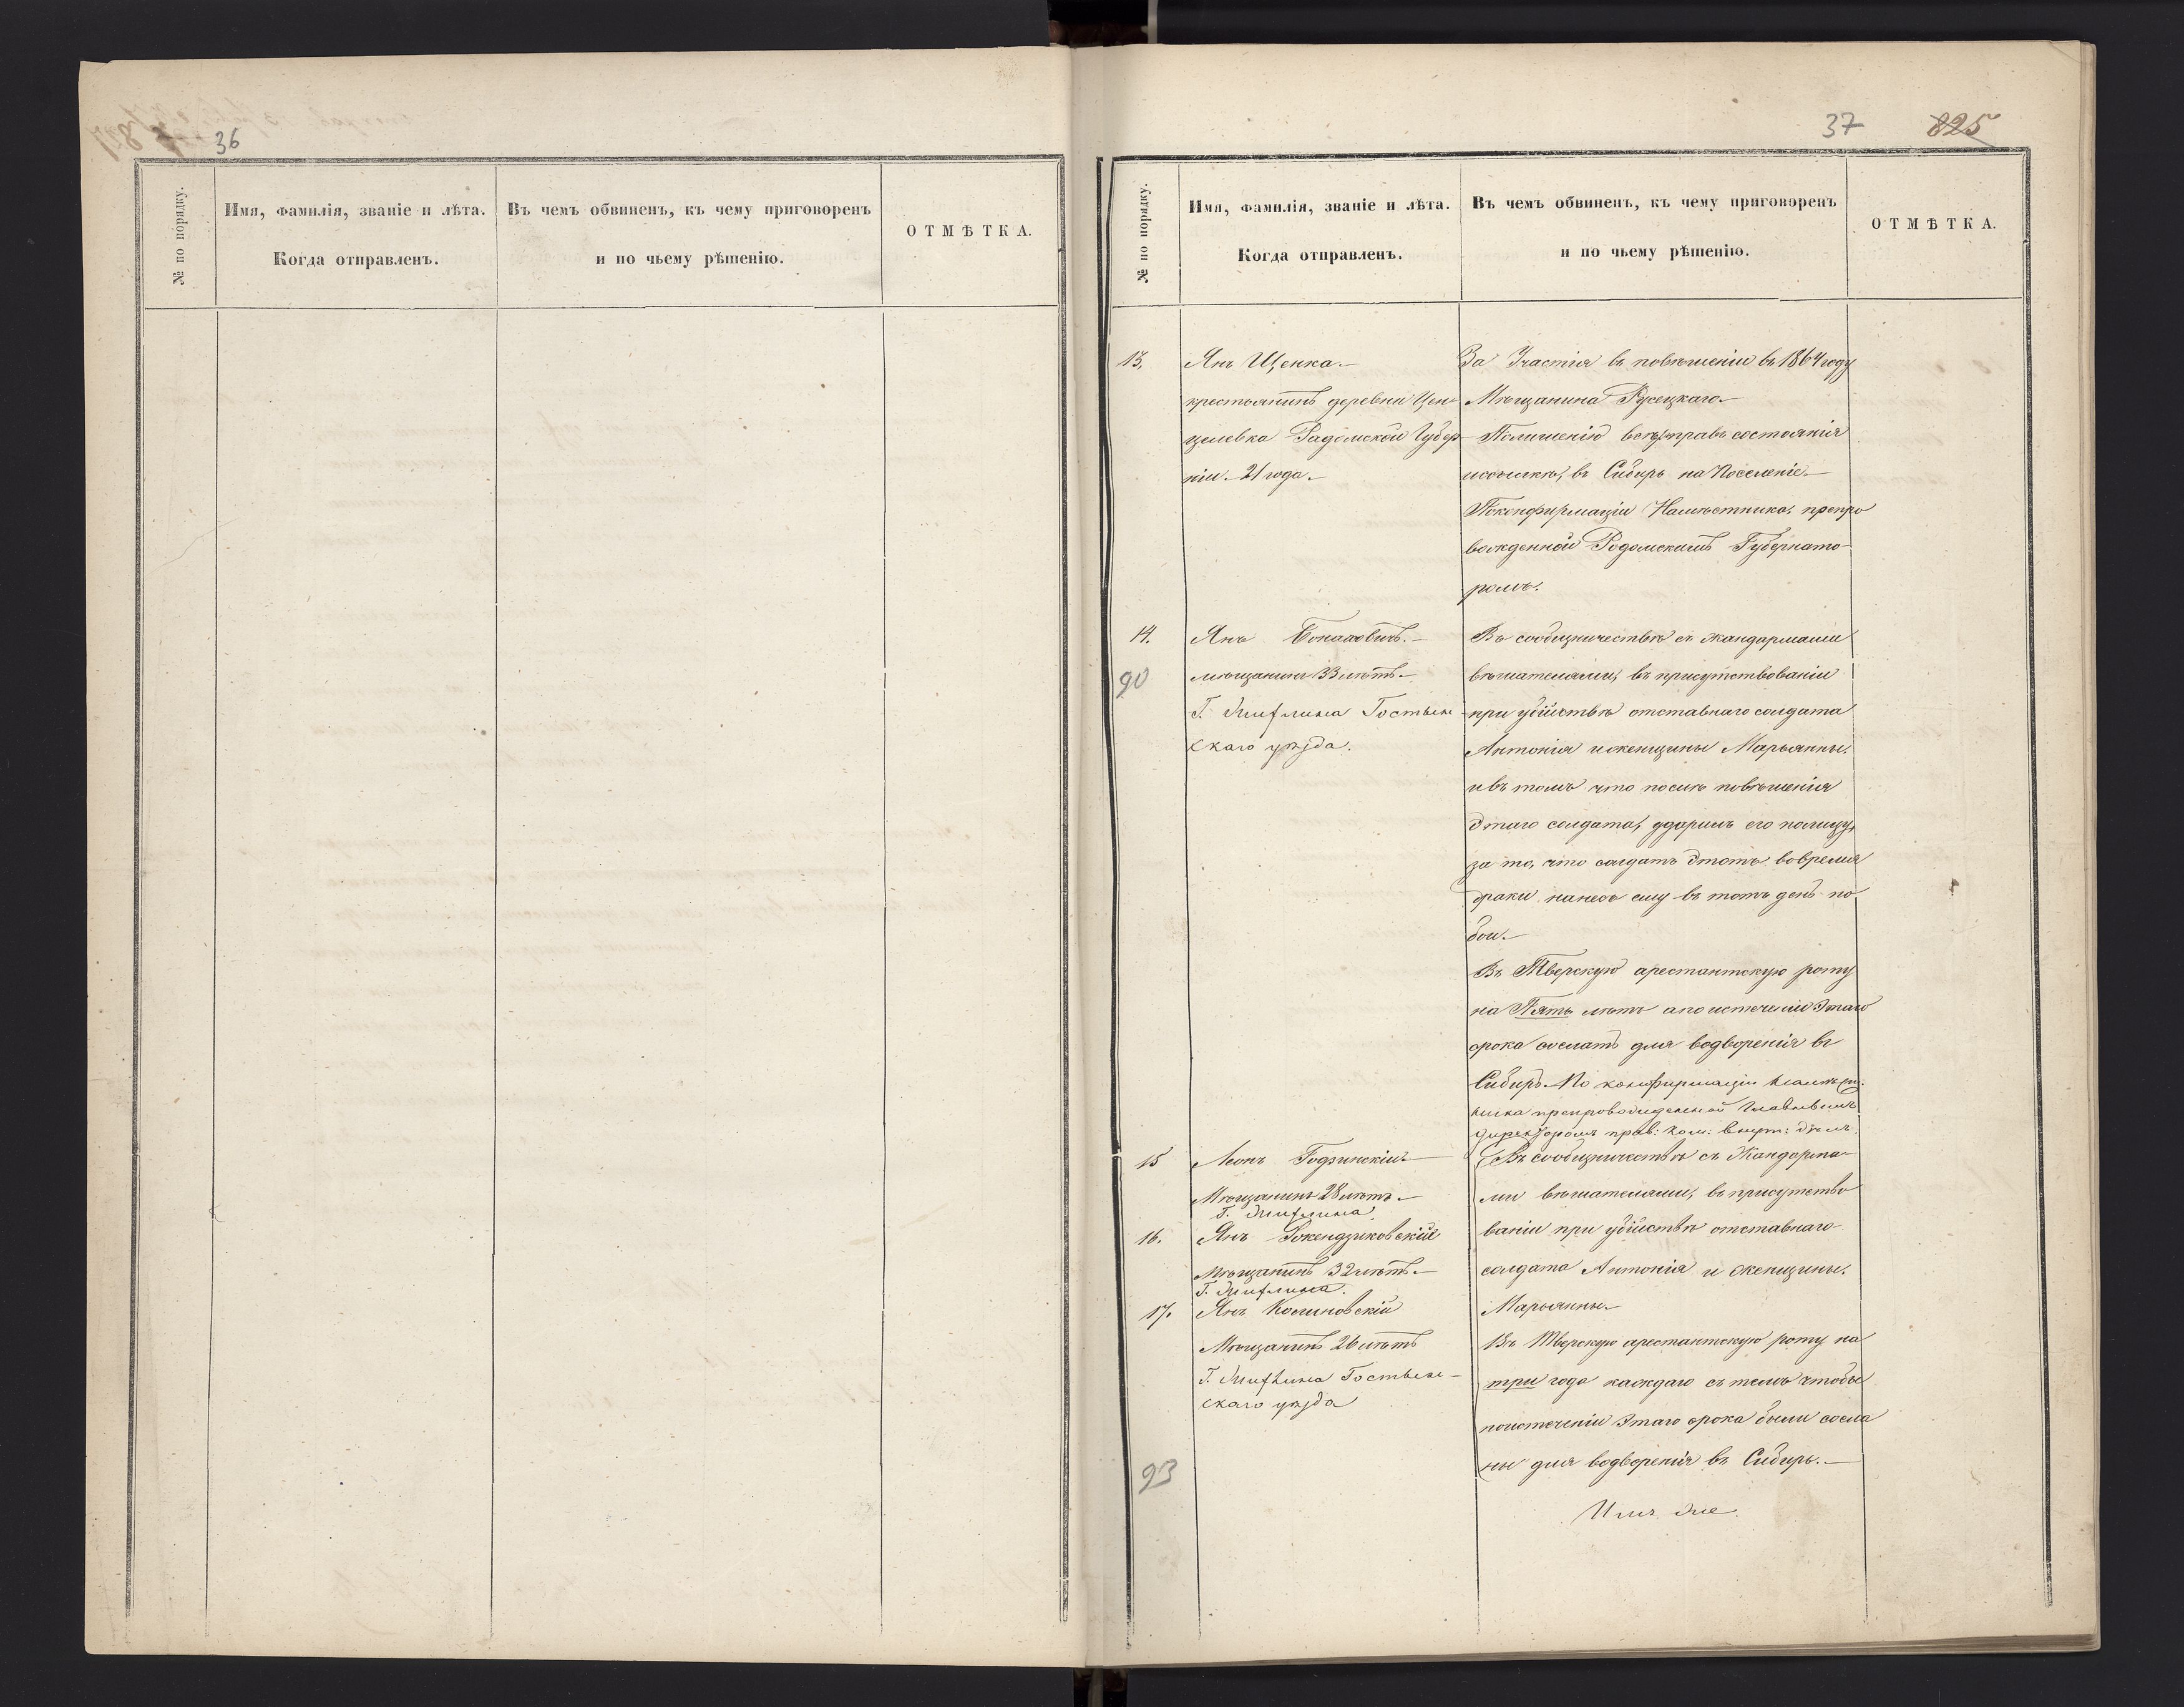 36
№ по порядку.
Имя, фамилія, званіе и лѣта.
Когда отправленъ.
Въ чемъ обвиненъ, къ чему приговоренъ
и по чьему рѣшенію.
ОТМѢТКА.
37 825
№ по порядку.
Имя, фамилія, званіе и лѣта.
Когда отправленъ.
Въ чемъ обвиненъ, къ чему приговоренъ
и по чьему рѣшенію.
ОТМѢТКА.
13.
Янъ Щенка.—
крестьянинъ деревни Цен-
целевка Радомской Губер-
ніи. 21 года.—
За Участія въ повѣшеніи въ 1864 году
Мѣщанина Русецкаго—
Полишенію всѣхъ правъ состоянія
иссылкѣ, въ Сибирь на Поселеніе.—
Поконфирмаціи Намѣстника, препро
вожденной Радомскимъ Губернато-
ромъ.
14.
90
Янъ
мѣщанинъ 33 лѣтъ.—
Г. Гостын-
скаго уѣзда.
Въ сообщничествѣ съ жандармами
вѣшателями, въ присутствованіи
при убійствѣ отставнаго солдата
Антонія иженщины Марьянны.
ивъ томъ что послѣ повѣшенія
этаго солдата, ударилъ его полицу,
за то, что солдатъ этотъ вовремя
драки нанесъ ему въ тотъ день по-
бои.—
Въ Тверскую арестантскую роту
на Пять лѣтъ апоистеченіи Этаго
срока сослать для водворенія въ
Сибирь. По конфирмаціи Намѣст-
ника препровожденной Главнымъ
Директоромъ прав: ком: внутр: дѣлъ.
15
Леонъ Годзинскій—
Мѣщанинъ 28 лѣтъ.—
Г.
16.
Янъ
Мѣщанинъ 32 лѣтъ.—
Г.
17.
Янъ Калиновскій
Мѣщанинъ 26 лѣтъ
Г. Гостын-
скаго уѣзда
93
Въ сообщничествѣ съ Жандарма-
ми вѣшателями, въ присутство
ваніи при убійствѣ отставнаго
солдата Антонія и Женщины.
Марьянны.—
Въ Тверскую арестантскую роту на
три года каждаго съ темъ чтобы
поистеченіи Этаго срока были сосла
ны для водворенія въ Сибирь.—
Имъ же.